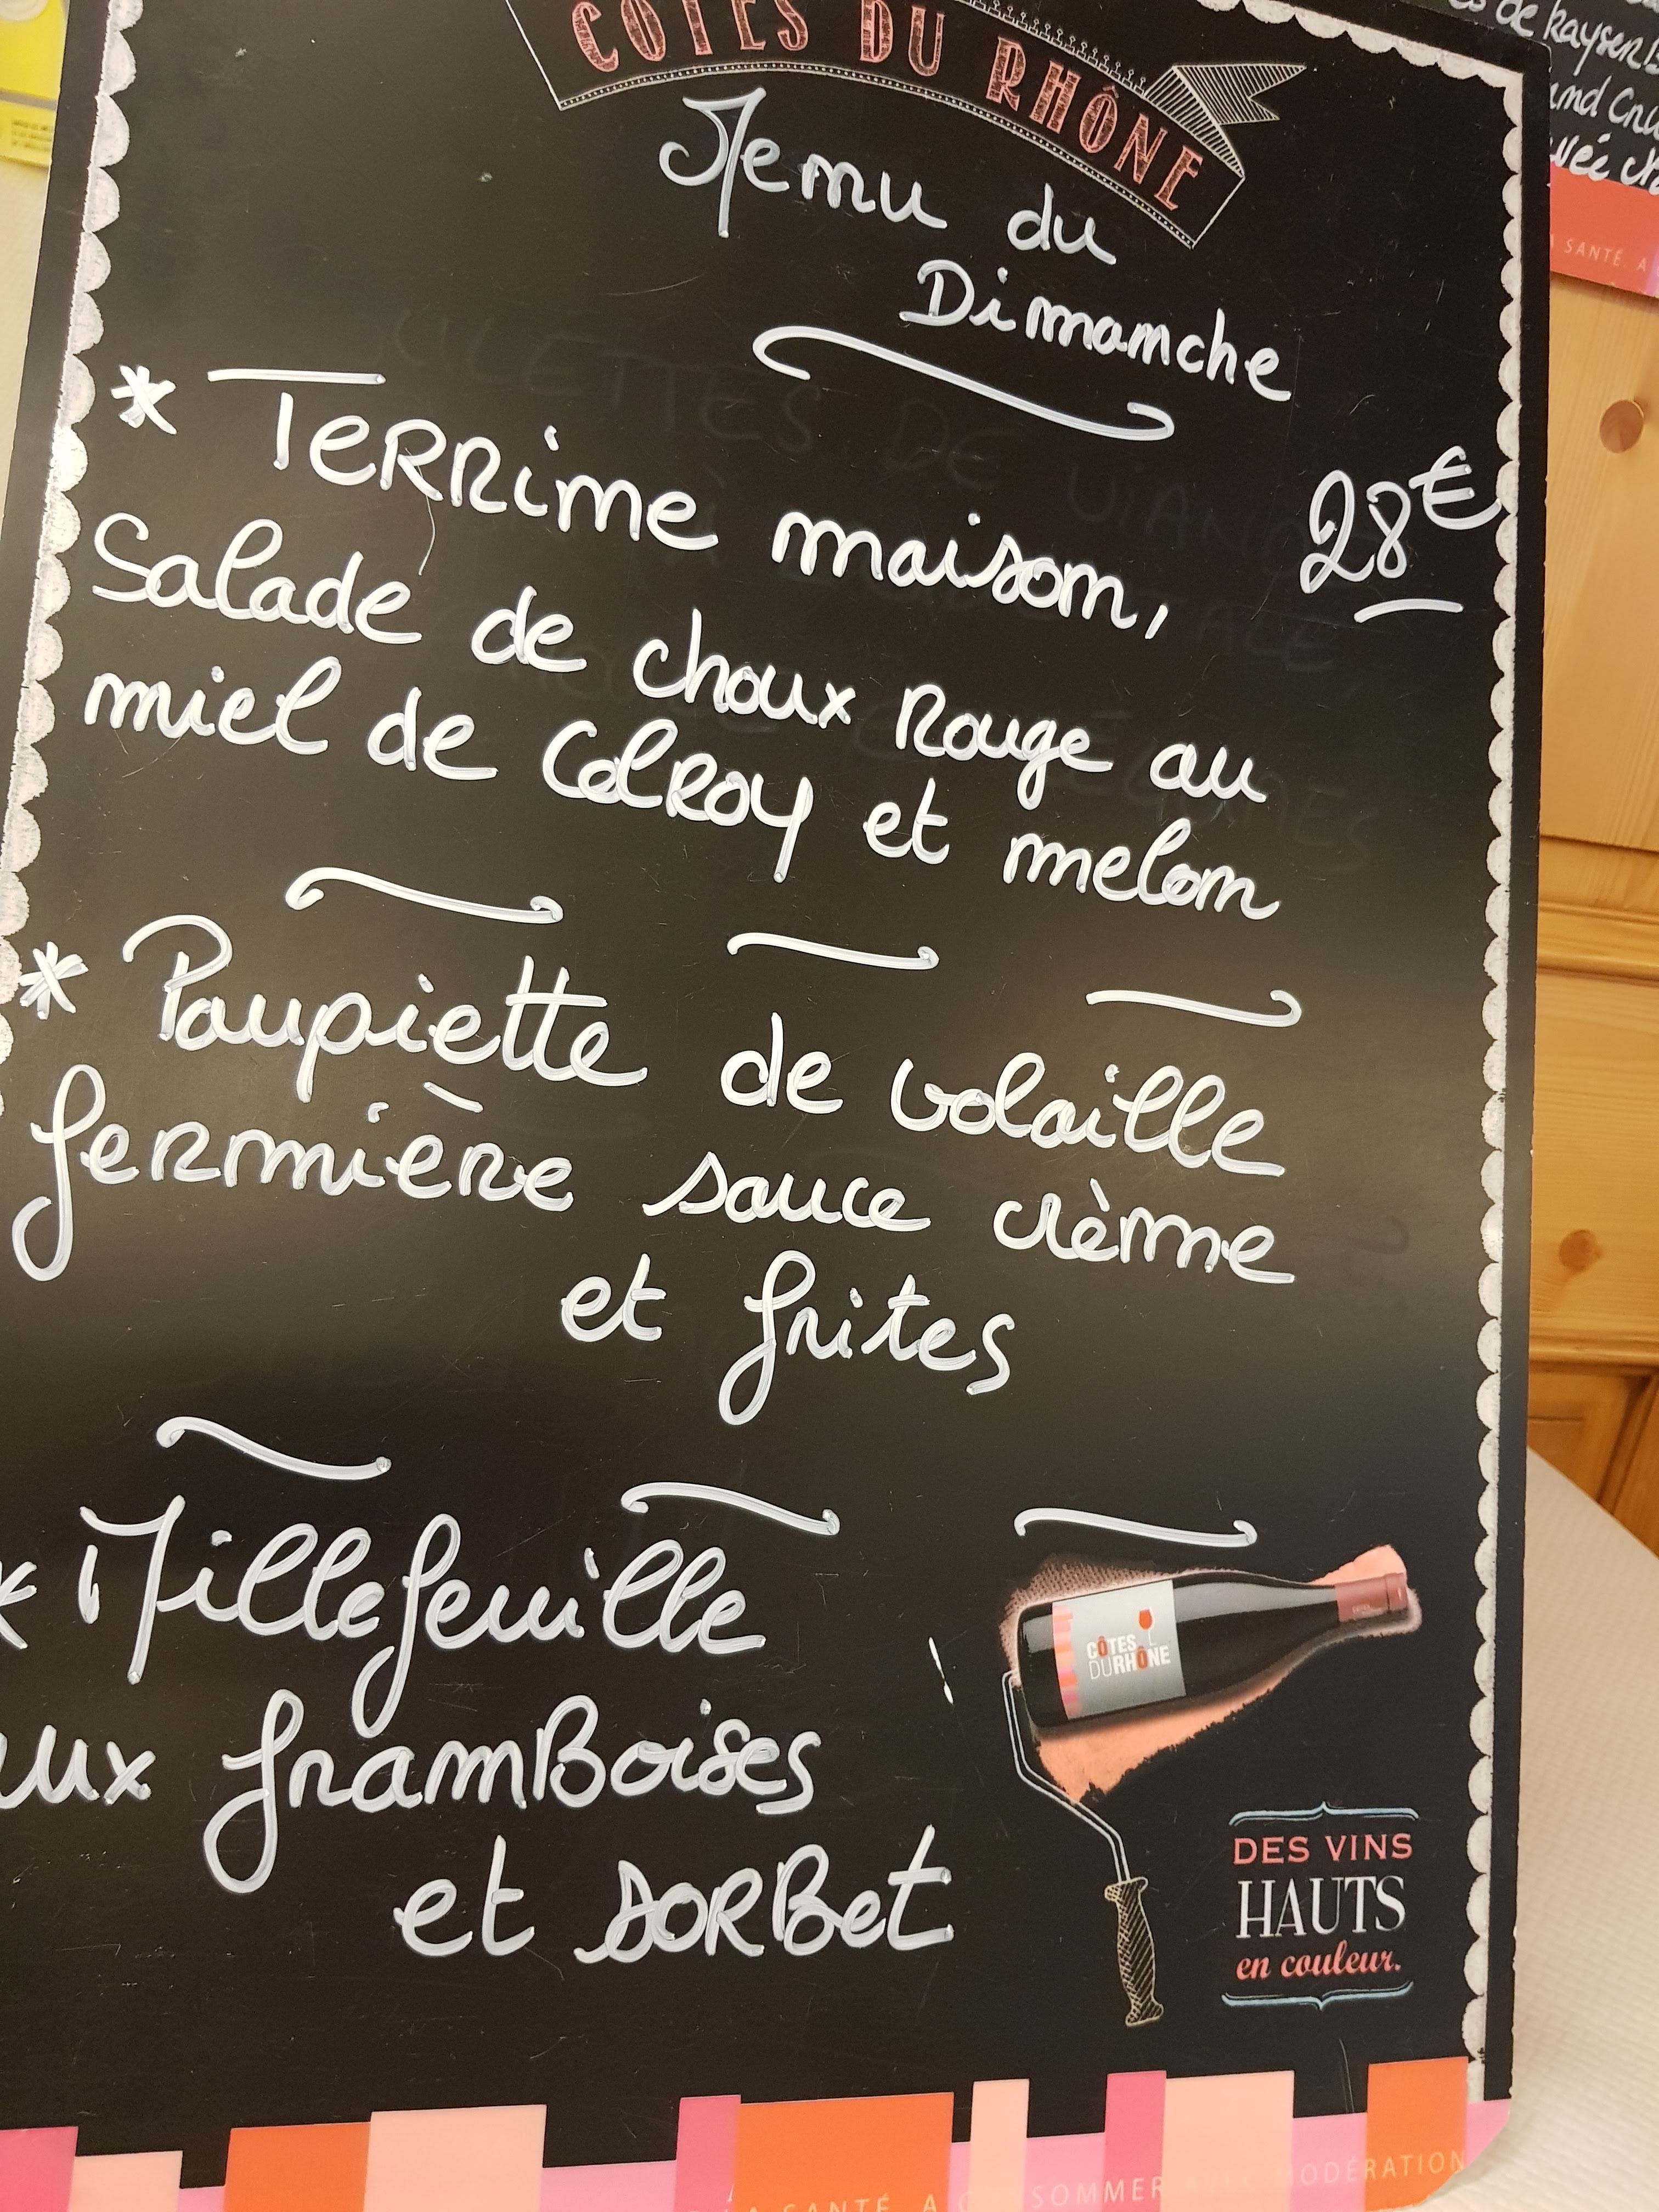 CÔTES DU RHÔNE
Menu du
Dimanche
28€
* Terrine maison,
Salade de choux Rouge au
miel de Colroy et melon
* Paupiette de volaille
fermière sauce crème
et frites
* Millefeuille
aux framBoises
et sorBet
CÔTES
DURHÔNE
DES VINS
HAUTS
en couleur.
LA SANTÉ. A CONSOMMER AVEC MODÉRATION
de kayser
SANTÉ. A